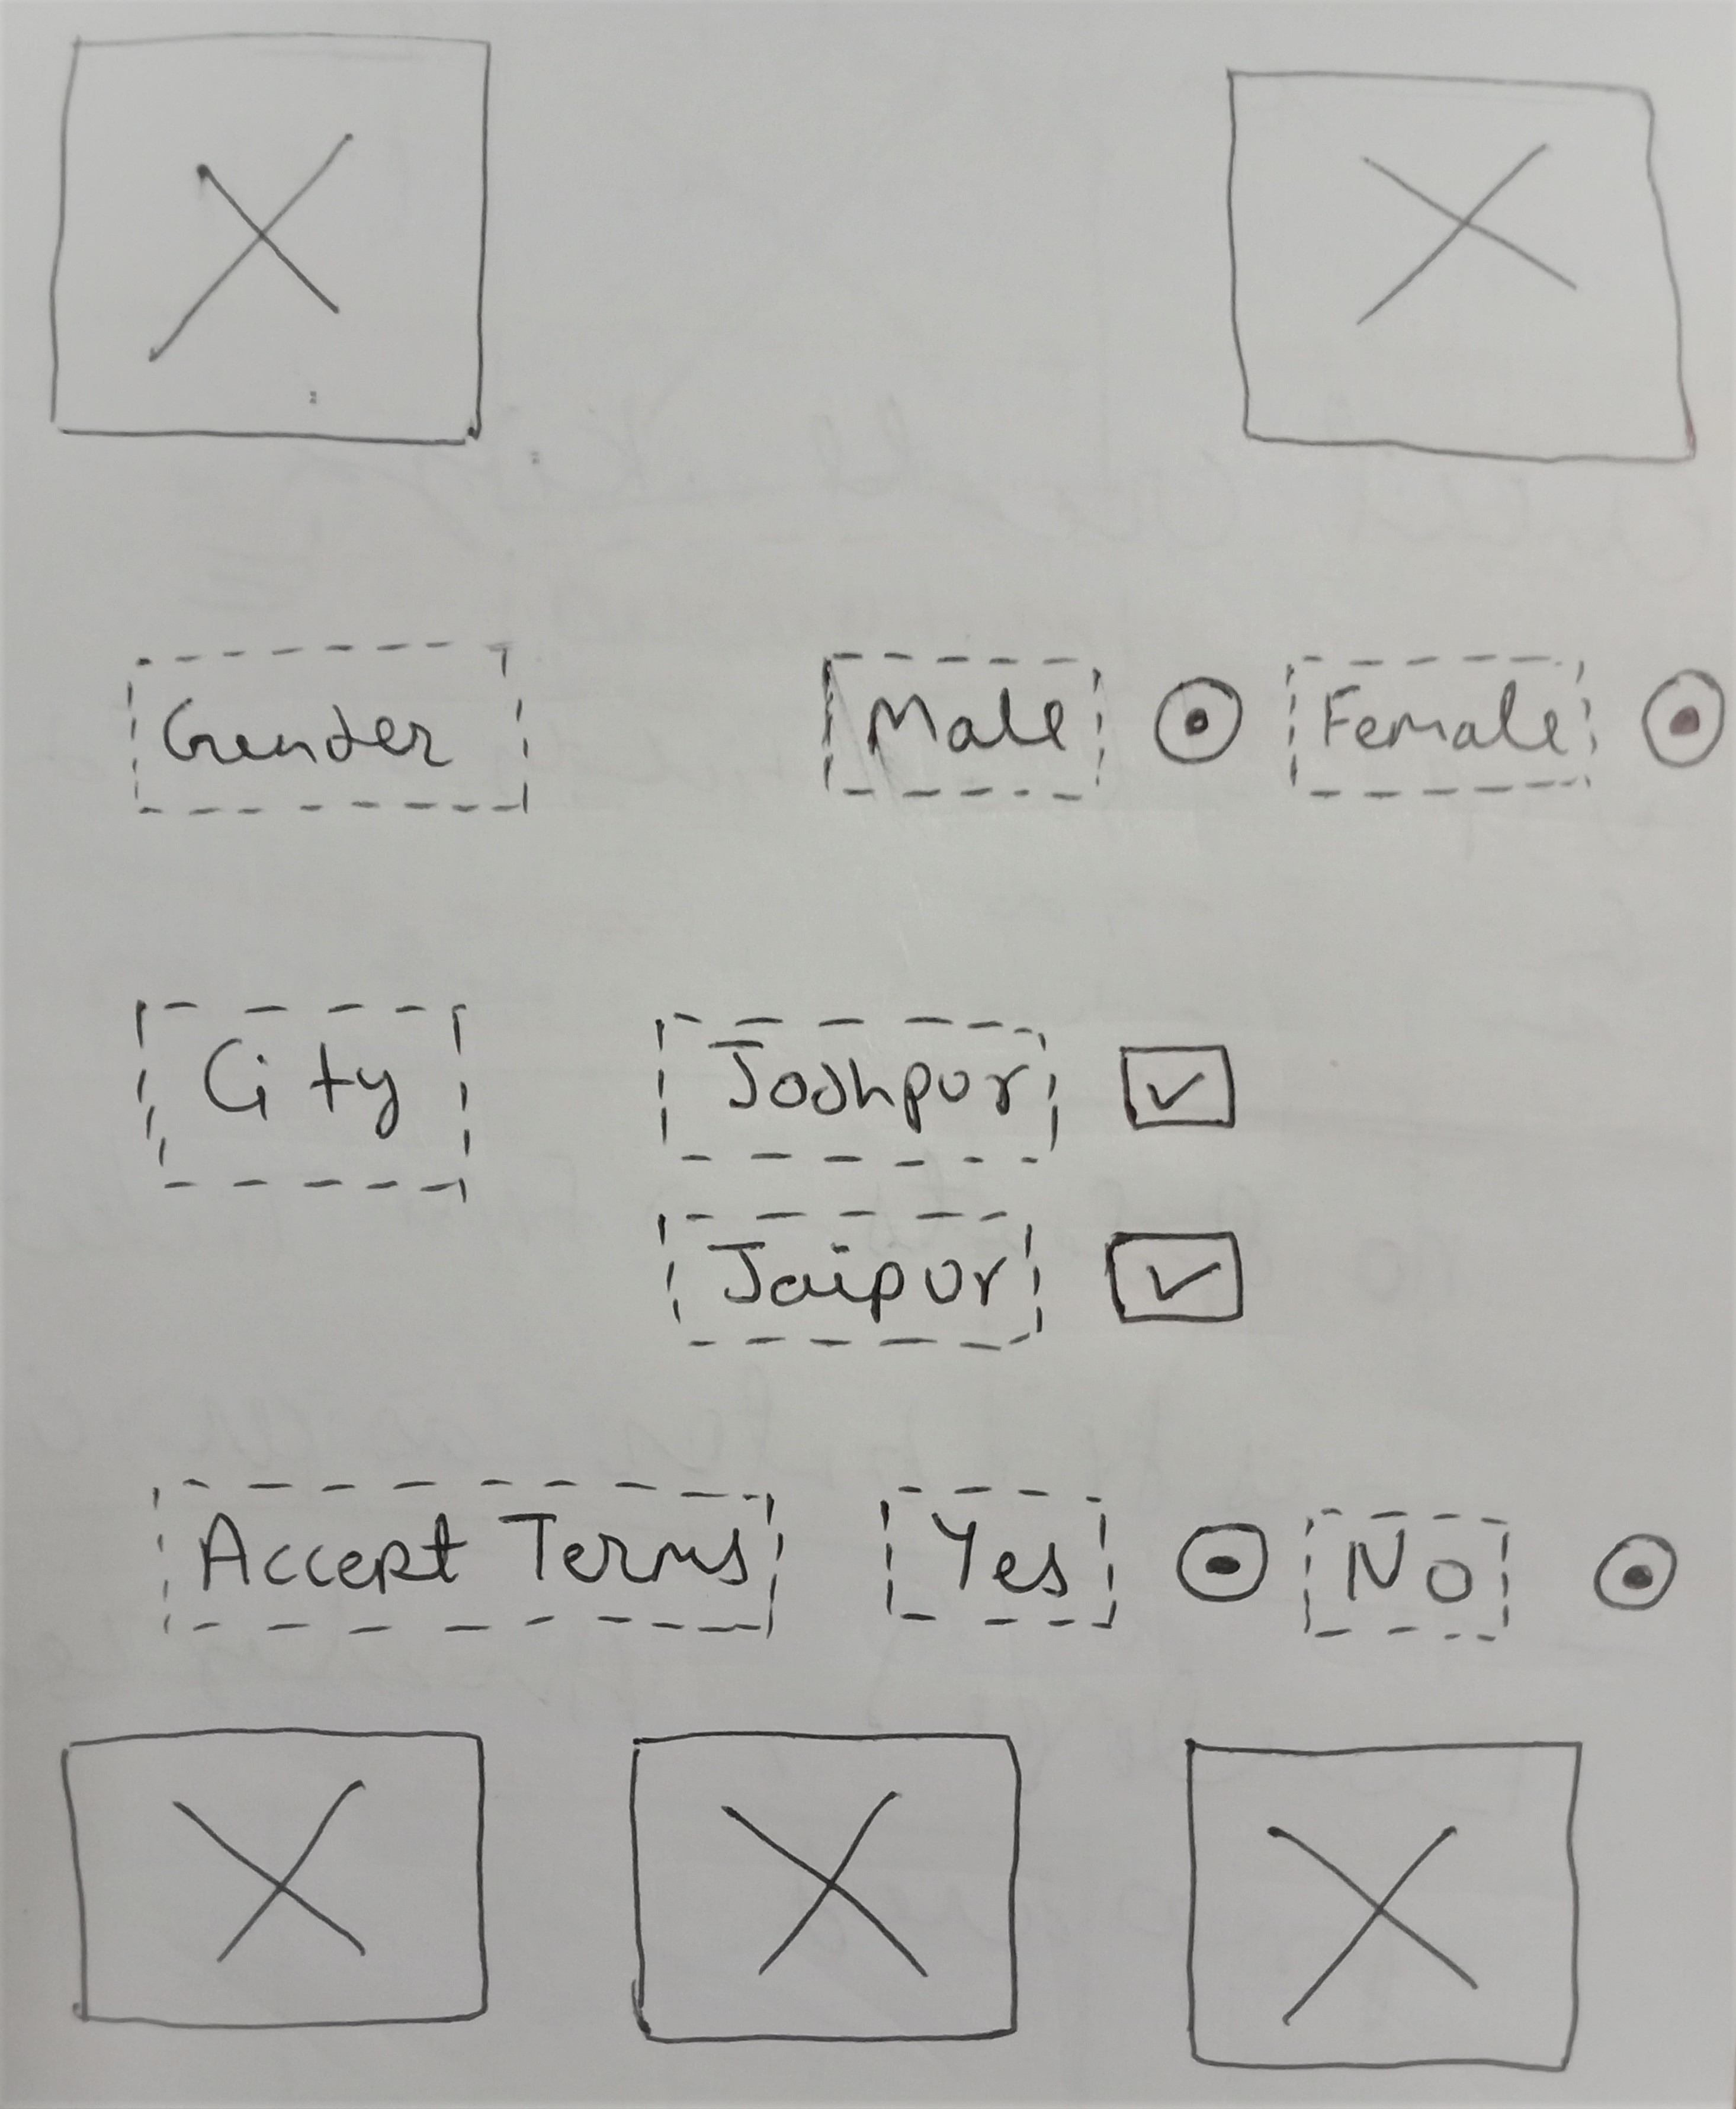 Gender Male Female
City Jodhpur
Jaipur
Accept Terms Yes No